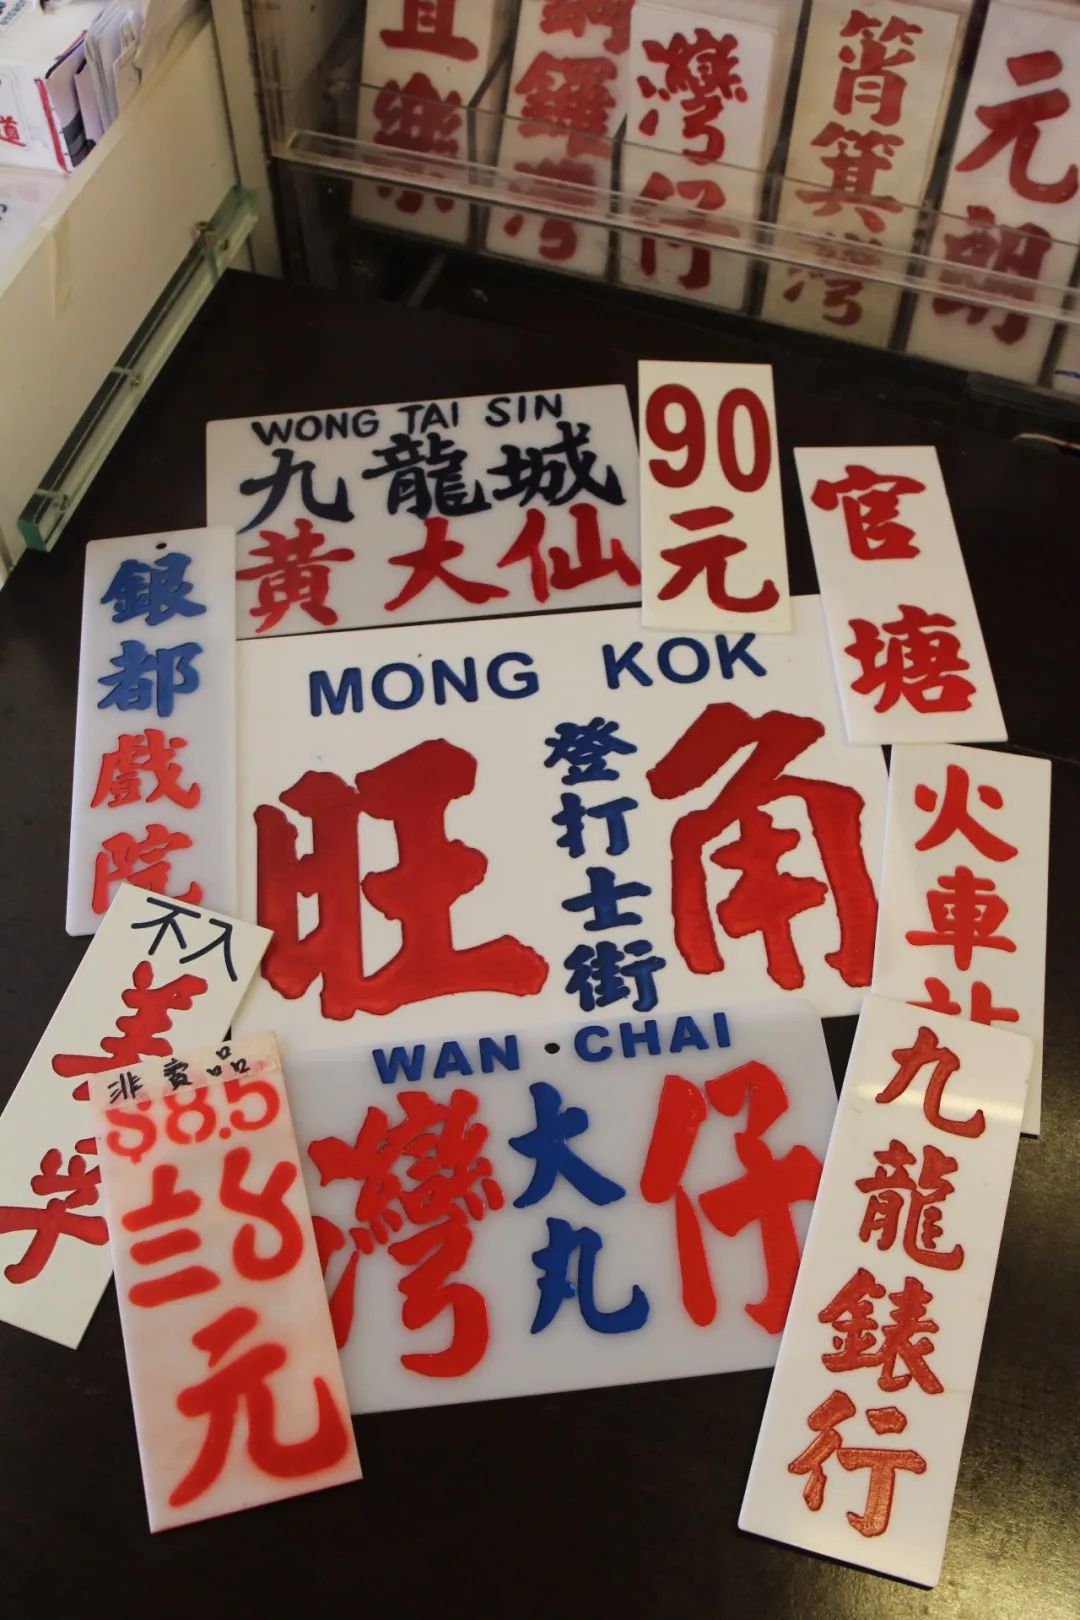 道
銅鑼灣
灣仔
筲箕灣
元朗
WONG TAI SIN
九龍城
黃大仙
90
元
官塘
銀都戲院
MONG KOK
旺角
登打士街
火車
不入
非賣品
$8.5
元
WAN CHAI
灣仔
大丸
九龍錶行